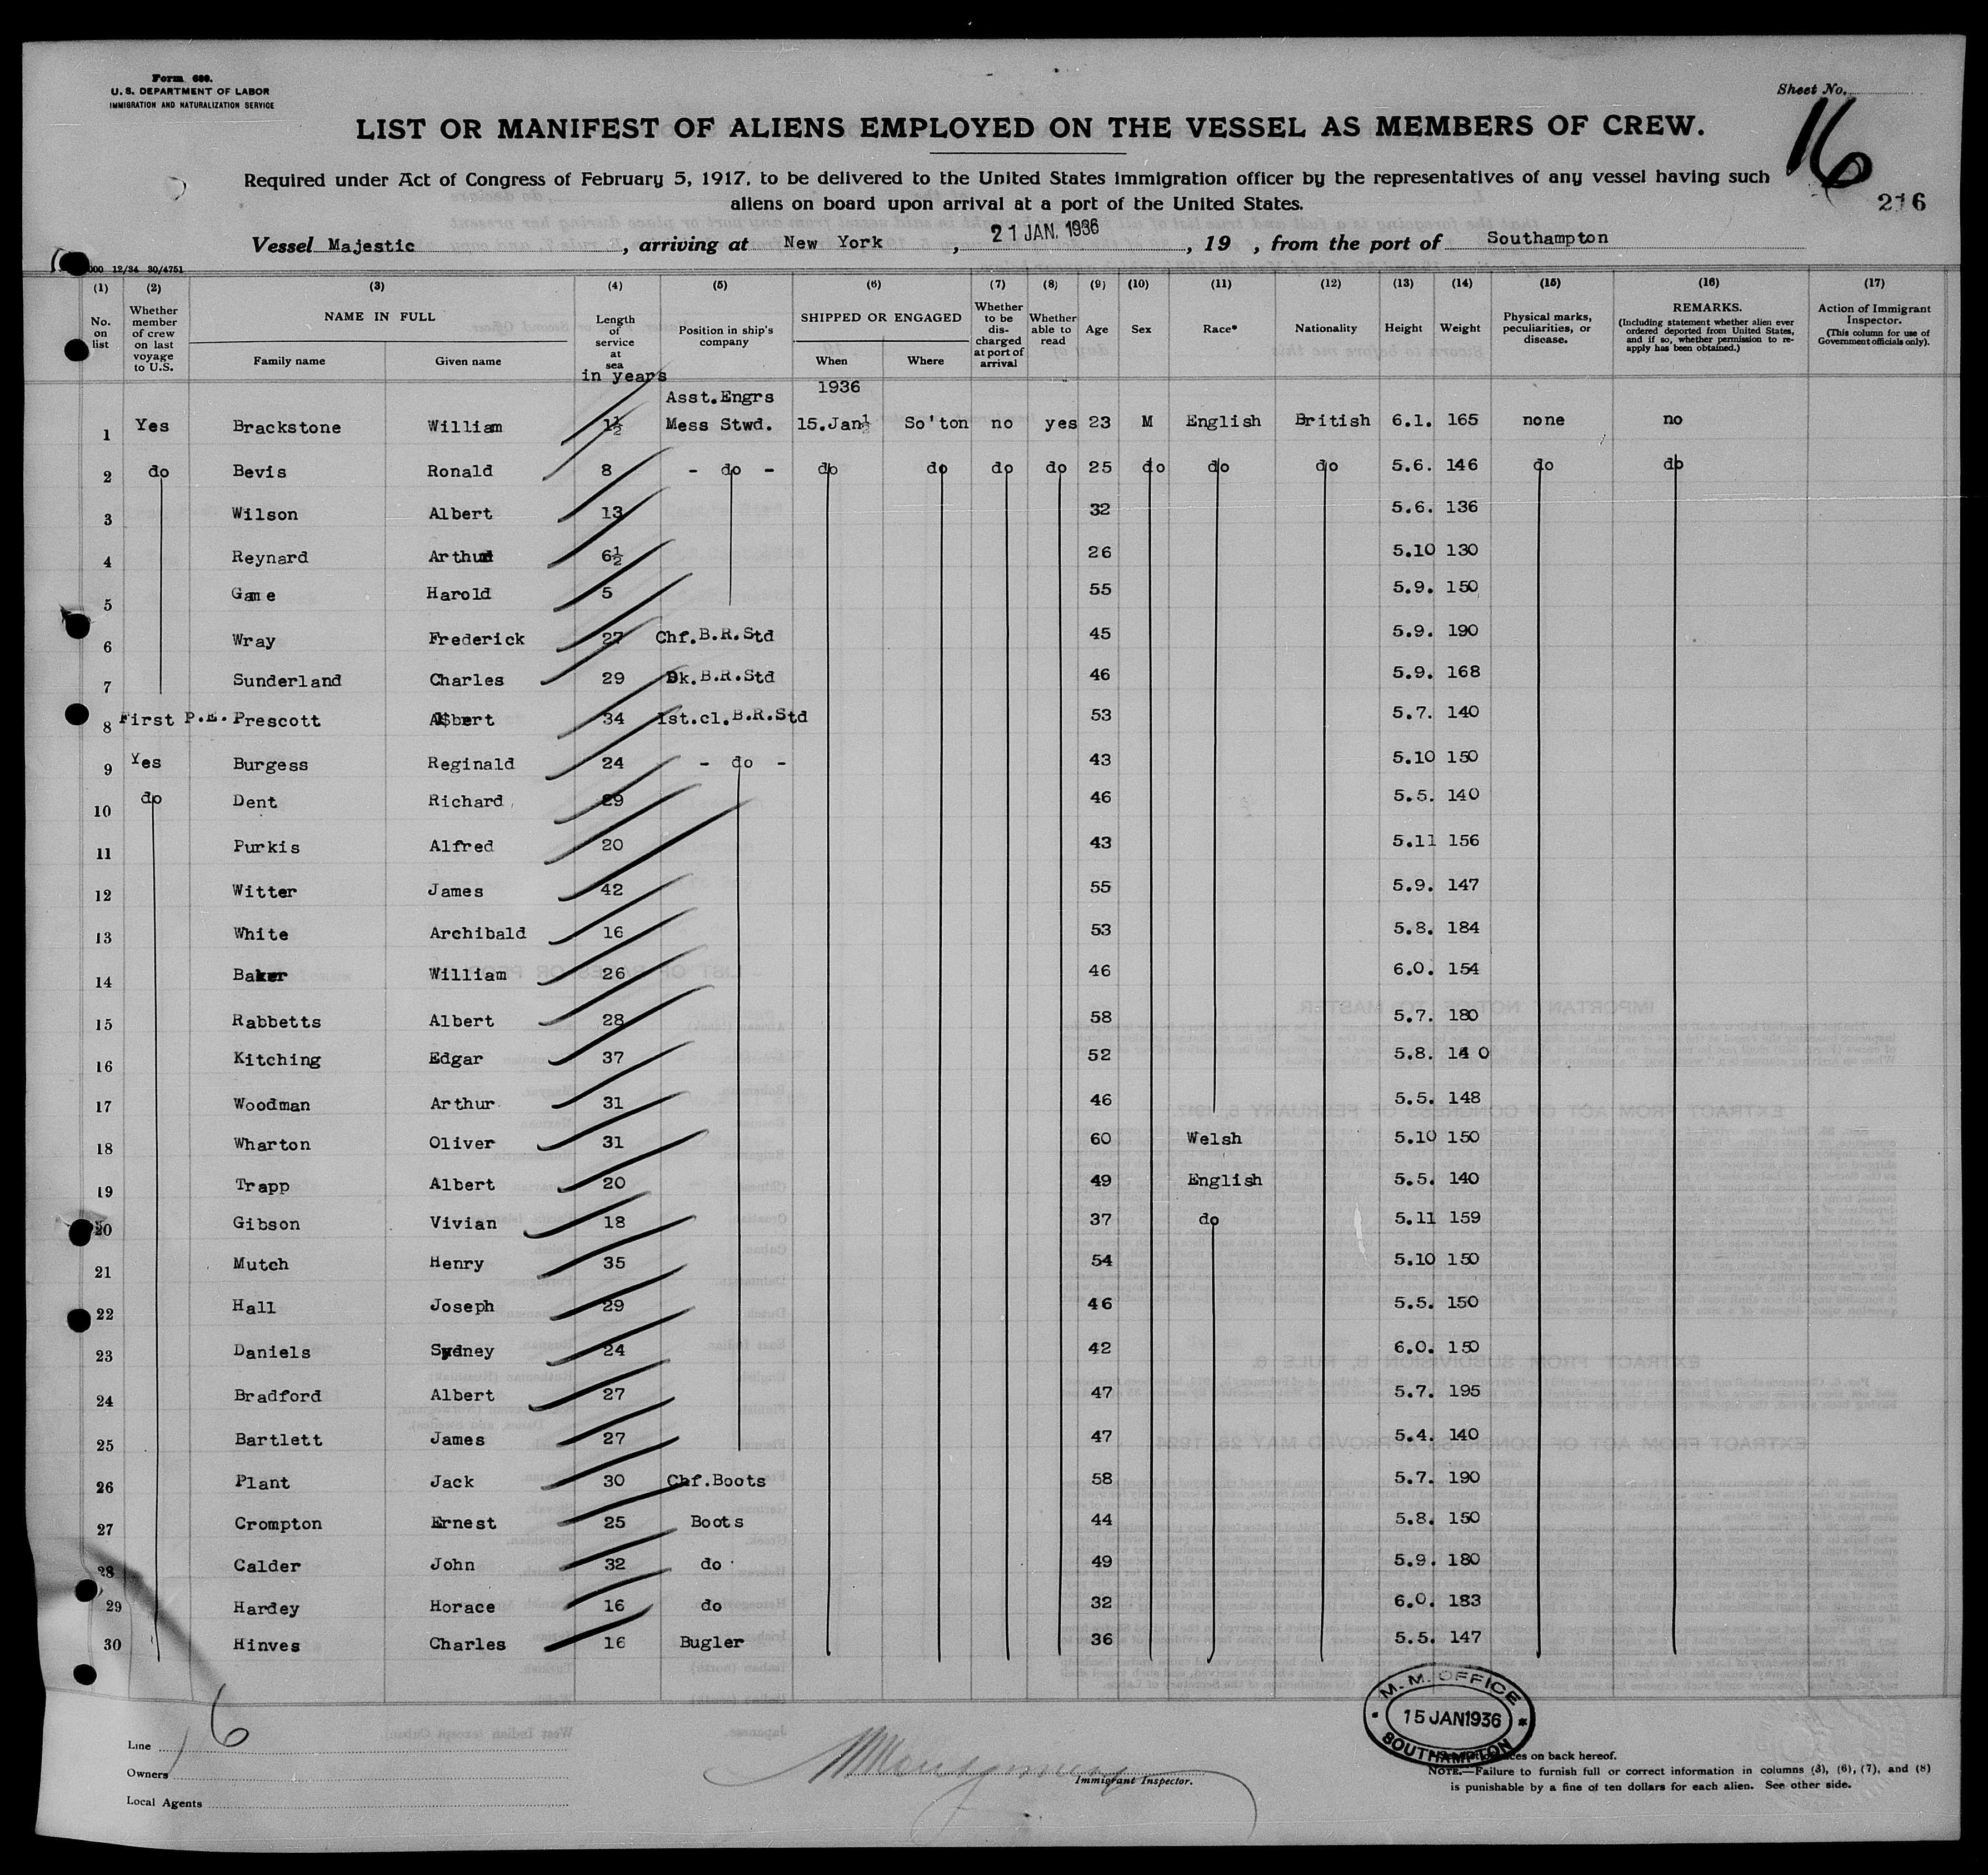 Form 680.
U. S. DEPARTMENT OF LABOR
IMMIGRATION AND NATURALIZATION SERVICE
Sheet No.
16
LIST OR MANIFEST OF ALIENS EMPLOYED ON THE VESSEL AS MEMBERS OF CREW.
Required under Act of Congress of February 5, 1917, to be delivered to the United States immigration officer by the representatives of any vessel having such
aliens on board upon arrival at a port of the United States.
216
Vessel Majestic , arriving at New York , 21 JAN. 1936 , 19 , from the port of Southampton
000 12/34 30/4751
(1) (2) (3) (4) (5) (6) (7) (8) (9) (10) (11) (12) (13) (14) (15) (16) (17)
No. on list
Whether member of crew on last voyage to U.S.
NAME IN FULL
Family name Given name
Length of service at sea
in years
Position in ship's company
SHIPPED OR ENGAGED
When Where
Whether to be discharged at port of arrival
Whether able to read
Age
Sex
Race*
Nationality
Height
Weight
Physical marks, peculiarities, or disease.
REMARKS.
(Including statement whether alien ever ordered deported from United States, and if so, whether permission to reapply has been obtained.)
Action of Immigrant Inspector.
(This column for use of Government officials only).
Asst.Engrs 1936
1 Yes Brackstone William 1½ Mess Stwd. 15.Jan½ So'ton no yes 23 M English British 6.1. 165 none no
2 do Bevis Ronald 8 - do - do do do do 25 do do do 5.6. 146 do do
3 Wilson Albert 13 32 5.6. 136
4 Reynard Arthur 6½ 26 5.10 130
5 Game Harold 5 55 5.9. 150
6 Wray Frederick 27 Chf.B.R.Std 45 5.9. 190
7 Sunderland Charles 29 Dk.B.R.Std 46 5.9. 168
8 First P.E. Prescott Albert 34 1st.cl.B.R.Std 53 5.7. 140
9 Yes Burgess Reginald 24 - do - 43 5.10 150
10 do Dent Richard 29 46 5.5. 140
11 Purkis Alfred 20 43 5.11 156
12 Witter James 42 55 5.9. 147
13 White Archibald 16 53 5.8. 184
14 Baker William 26 46 6.0. 154
15 Rabbetts Albert 28 58 5.7. 180
16 Kitching Edgar 37 52 5.8. 14 0
17 Woodman Arthur 31 46 5.5. 148
18 Wharton Oliver 31 60 Welsh 5.10 150
19 Trapp Albert 20 49 English 5.5. 140
20 Gibson Vivian 18 37 do 5.11 159
21 Mutch Henry 35 54 5.10 150
22 Hall Joseph 29 46 5.5. 150
23 Daniels Sydney 24 42 6.0. 150
24 Bradford Albert 27 47 5.7. 195
25 Bartlett James 27 47 5.4. 140
26 Plant Jack 30 Chf.Boots 58 5.7. 190
27 Crompton Ernest 25 Boots 44 5.8. 150
28 Calder John 32 do 49 5.9. 180
29 Hardey Horace 16 do 32 6.0. 183
30 Hinves Charles 16 Bugler 36 5.5. 147
16
Line
Owners
Local Agents
Immigrant Inspector.
M. M. OFFICE
15 JAN 1936
SOUTHAMPTON
on back hereof.
NOTE.—Failure to furnish full or correct information in columns (3), (6), (7), and (8)
is punishable by a fine of ten dollars for each alien. See other side.